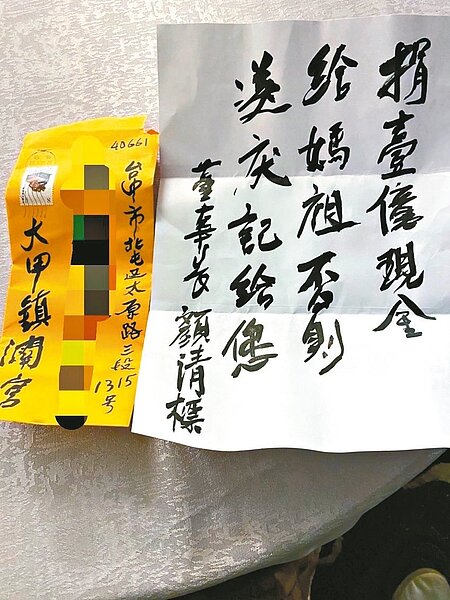 捐壹億現金
給媽祖否則
災厄記給您
董事長顏清標
40661
台中市北屯区太原路三段
1315号
大甲鎮瀾宮